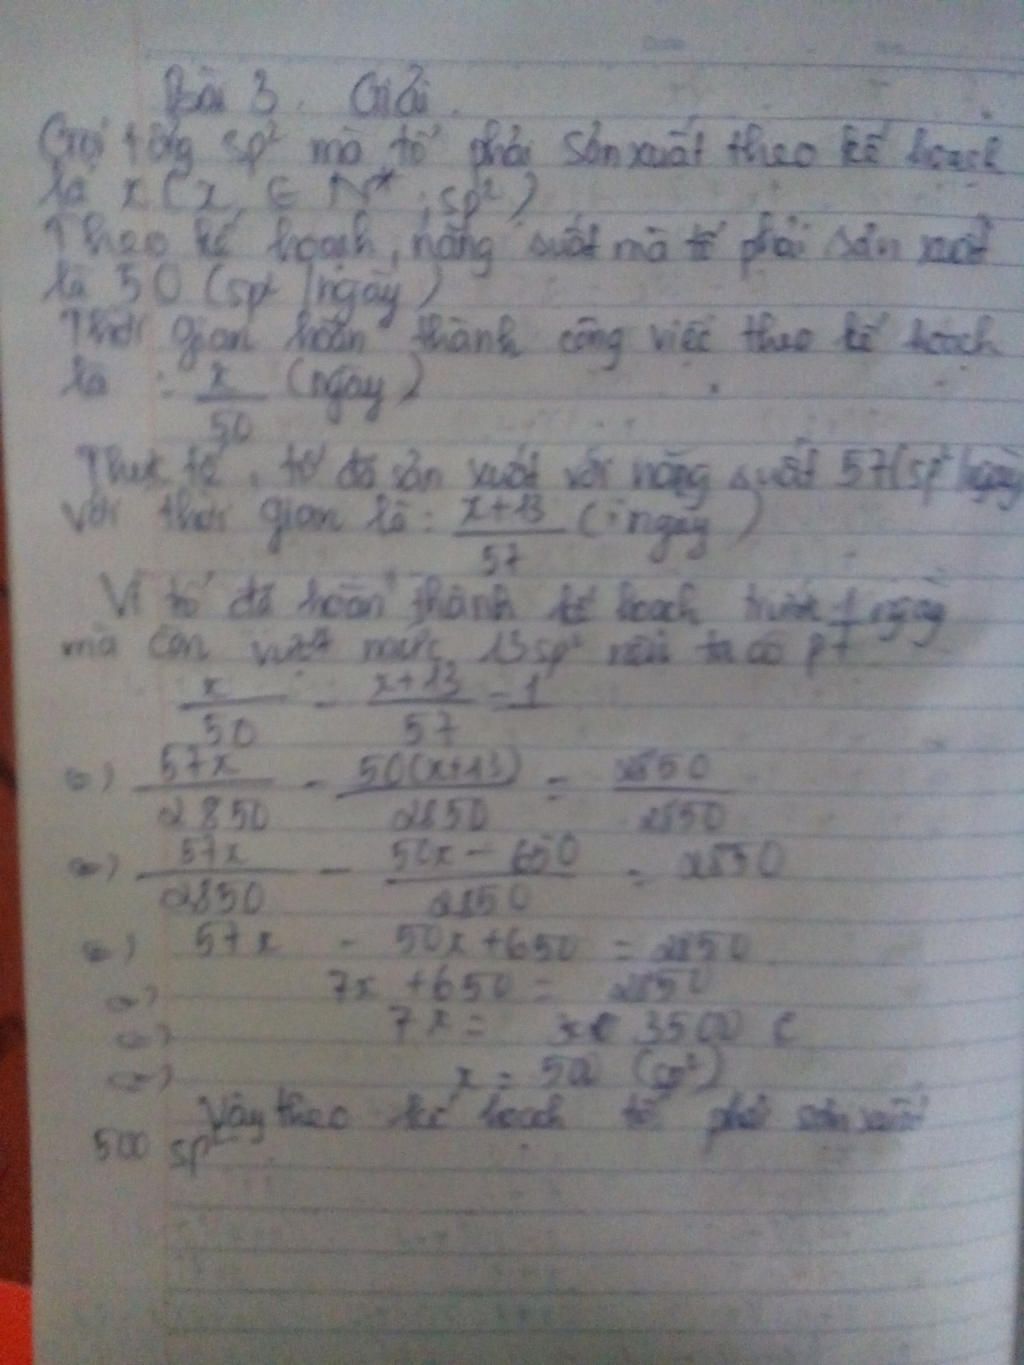 Bài 3. Giải.
Gọi tổng sp² mà tổ phải sản xuất theo kế hoạch
là x (x ∈ N*, sp²)
Theo kế hoạch, năng suất mà tổ phải sản xuất
là 50 (sp² / ngày)
Thời gian hoàn thành công việc theo kế hoạch
là : x/50 (ngày)
Thực tế, tổ đã sản xuất với năng suất 57 (sp² / ngày
với thời gian là : x+13/57 (ngày)
Vì tổ đã hoàn thành kế hoạch trước 1 ngày
mà còn vượt mức 13 sp² nên ta có pt
x/50 - x+13/57 = 1
=) 57x/2850 - 50(x+13)/2850 = 2850/2850
=) 57x/2850 - 50x - 650/2850 = 2850
=) 57x - 50x + 650 = 2850
=) 7x + 650 = 2850
=) 7x = 3500
=) x = 500 (sp²)
Vậy theo kế hoạch tổ phải sản xuất
500 sp²